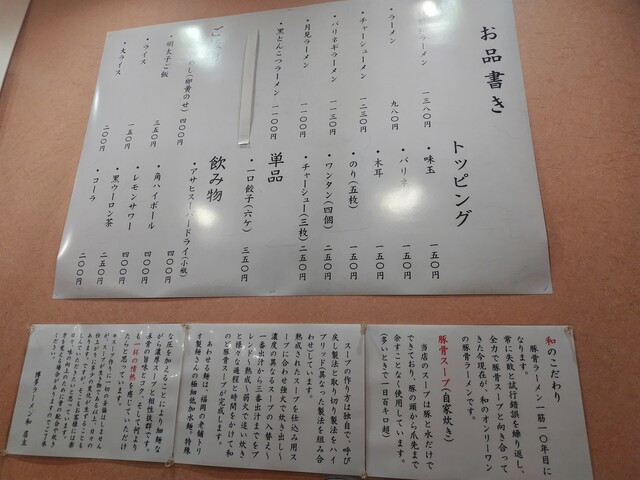 お品書き
ラーメン 一三八〇円
・ラーメン 九八〇円
・チャーシューメン 一二三〇円
・バリネギラーメン 一一三〇円
・月見ラーメン 一一〇〇円
・黒とんこつラーメン 一一〇〇円
めし(卵黄のせ) 四〇〇円
・明太子ご飯 三五〇円
・ライス 一五〇円
・大ライス 二〇〇円
トッピング
・味玉 一五〇円
・バリネ 一五〇円
・木耳 一五〇円
・のり(五枚) 一五〇円
・ワンタン(四個) 二五〇円
・チャーシュー(三枚) 二五〇円
単品
・一口餃子(六ケ) 三五〇円
飲み物
・アサヒスーパードライ(小瓶) 四〇〇円
・角ハイボール 四〇〇円
・レモンサワー 四〇〇円
・黒ウーロン茶 二五〇円
・コーラ 二〇〇円
和のこだわり
豚骨ラーメン一筋一〇年目に
なります。
常に失敗と試行錯誤を繰り返し、
全力で豚骨スープと向き合って
きた今現在が、和のオンリーワン
の豚骨ラーメンです。
豚骨スープ(自家炊き)
当店のスープは豚と水だけで
できており、豚の頭から爪先まで
余すことなく使用しています。
(多いときで一日百キロ超)
スープの作り方は独自で、呼び
戻し製法と取り切り製法をハイ
ブリッドで異なった製法を組み合
わせしています。
熟成されたスープを仕込み用ス
ープに合わせ強火で炊き出し~
濃度の異なるスープの入替え~
一番出汁から三番出汁までをブ
レンド~熟成~弱火で追い炊き
と様々な過程と時間をかけて和
のど豚骨スープが完成します。
あわせる麺は、福岡の老舗トリ
オ製麺さんの極細低加水麺。特殊
な圧を加えることにより細麺な
がら濃厚スープと相性抜群です。
豚骨の旨味とコク、そして何より
も一杯の情熱を感じていただけ
たらと思っています。
博多ラーメン和 店主